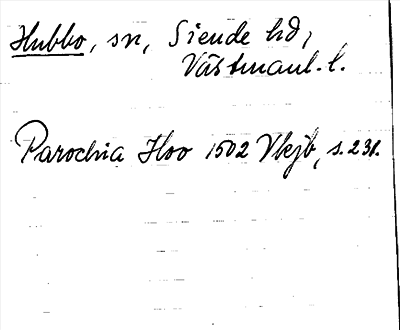 Hubbo, sn, Siende hd,
Västmanl. l.
Parochia Hoo 1502 Vkjb, s. 231.